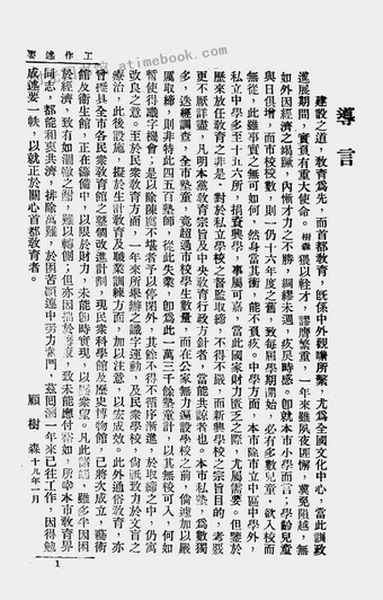 atimebook.com
工作述要
導言
建設之道，教育爲先，而首都教育，旣係中外觀瞻所繫，尤爲全國文化中心，當此訓政
進展期間，實負有重大使命。樹森猥以輇才，謬膺繁重，一年來雖夙夜匪懈，冀免隕越，無
如外因經濟之竭蹶，內慚才力之不勝，綢繆未遇，疚戾時感。卽就本市小學而言；學齡兒童
與日俱增，而市校校數，則一仍十六年度之舊，致每屆學期開始，必有多數兒童，欲入校而
無從，此雖事實之無可如何，然身當其衝，能不負疚。中學方面，本市除市立中區中學外，
私立中學多至十五六所，捐資興學，事屬可嘉，當此國家財力匱乏之際，尤屬需要。但鑒於
歷來放任教育之非是，對於私立學校之督監取締，不得不嚴，而新興學校之宗旨目的，考覈
更不厭詳盡，凡明本黨教育宗旨及中央教育行政方針者，當能共諒者也。本市私塾，爲數獨
多，迭經調查，全市塾童，竟超過市校學生數量，而在公家無力遍設學校之前，倘遽加以嚴
厲取締，則非特此四五百塾師，從此失業，卽爲此一萬三千餘塾童計，以其無校可入，何如
暫使得識字機會；是以除陳腐不堪者予以停閉外，其餘不得不循序漸進，於取締之中，仍寓
改良之意。至於民衆教育方面，一年來所舉辦之識字運動，及民衆學校，尙祇致力於文盲之
療治，此後設施，擬於生計教育及職業訓練方面，加以注意，以宏成效。此外通俗教育，亦
曾擬具全市各民衆教育館之整個改進計劃，現民衆科學館及歷史博物館，已將次成立，藝術
館及衛生館，正在籌備中，以限於財力，未能卽時實現，以慰衆望。凡此諸端，雖多半因困
於經濟，致有如涸轍之鮒，難以轉側；但亦因拙於，致未能應付裕如，所幸本市教育界
同志，都能和衷共濟，排除萬難，於困苦顚連中努力奮鬥，茲回溯一年來已往工作，因得勉
成述要一帙，以就正於關心首都教育者。
顧樹森 十九年一月
1